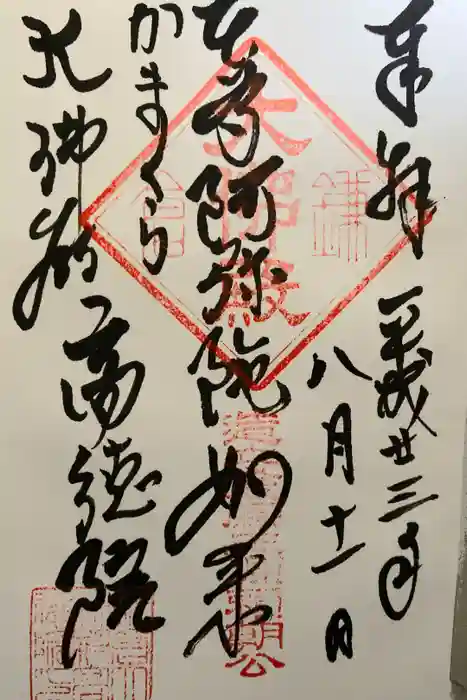 奉拝
平成廿三年
八月十一日
本尊阿弥陀如来
かまくら
大佛殿
高徳院
大佛殿
鎌倉